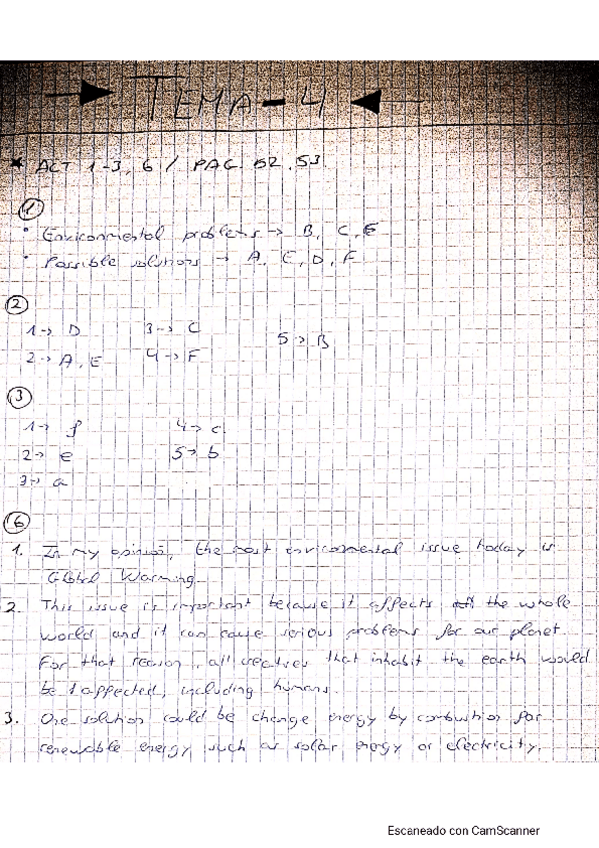 TEMA-4
* ACT 1-3, 6 / PAG. 52, 53
1
• Environmental problems → B, C, E
• Possible solutions → A, E, D, F
2
1 → D 3 → C 5 → B
2 → A, E 4 → F
3
1 → f 4 → c
2 → e 5 → b
3 → a
6
1. In my opinion, the most environmental issue today is
Global Warming.
2. This issue is important because it affects the whole
world and it can cause serious problems for our planet.
For that reason, all creatures that inhabit the earth would
be affected, including humans.
3. One solution could be change energy by combustion for
renewable energy such as solar energy or electricity.
Escaneado con CamScanner